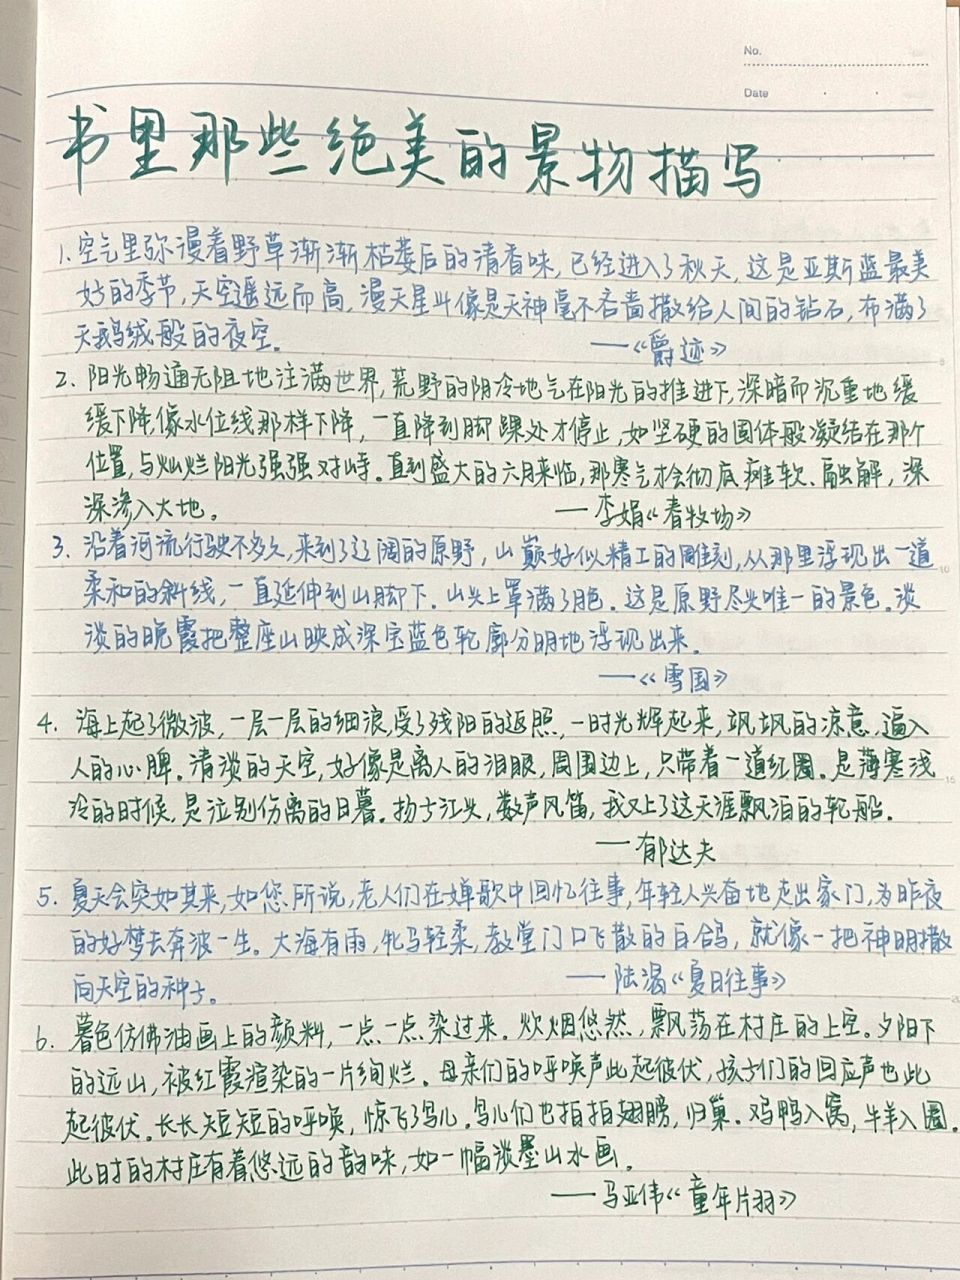 No.
Date
书里那些绝美的景物描写
1. 空气里弥漫着野草渐渐枯萎后的清香味,已经进入了秋天,这是亚斯蓝最美
好的季节,天空遥远而高,漫天星斗像是天神毫不吝啬撒给人间的钻石,布满了
天鹅绒般的夜空。
——《爵迹》
2. 阳光畅通无阻地注满世界,荒野的阴冷地气在阳光的推进下,深暗而沉重地缓
缓下降,像水位线那样下降,一直降到脚踝处才停止,如坚硬的固体般凝结在那个
位置,与灿烂阳光强强对峙。直到盛大的六月来临,那寒气才会彻底瘫软、融解,深
深渗入大地。
——李娟《春牧场》
3. 沿着河流行驶不多久,来到了辽阔的原野,山巅好似精工的雕刻,从那里浮现出一道
柔和的斜线,一直延伸到山脚下。山头上罩满了月色。这是原野尽头唯一的景色。淡
淡的晚霞把整座山映成深宝蓝色轮廓分明地浮现出来。
——《雪国》
4. 海上起了微波,一层一层的细浪,受了残阳的返照,一时光辉起来,飒飒的凉意,遍入
人的心脾。清淡的天空,好像是离人的泪眼,周围边上,只带着一道红圈。是薄寒浅
冷的时候,是泣别伤离的日暮。扬子江头,数声风笛,我又上了这天涯飘泊的轮船。
——郁达夫
5. 夏天会突如其来,如您所说,老人们在蝉歌中回忆往事,年轻人兴奋地走出家门,为昨夜
的好梦去奔波一生。大海有雨,牝马轻柔,教堂门口飞散的白鸽,就像一把神明撒
向天空的种子。
——陆渴《夏日往事》
6. 暮色仿佛油画上的颜料,一点一点染过来。炊烟悠然,飘荡在村庄的上空。夕阳下
的远山,被红霞渲染的一片绚烂。母亲们的呼唤声此起彼伏,孩子们的回应声也此
起彼伏。长长短短的呼唤,惊飞了鸟儿。鸟儿们也拍拍翅膀,归巢。鸡鸭入窝,牛羊入圈。
此时的村庄有着悠远的韵味,如一幅淡墨山水画。
——马亚伟《童年片羽》